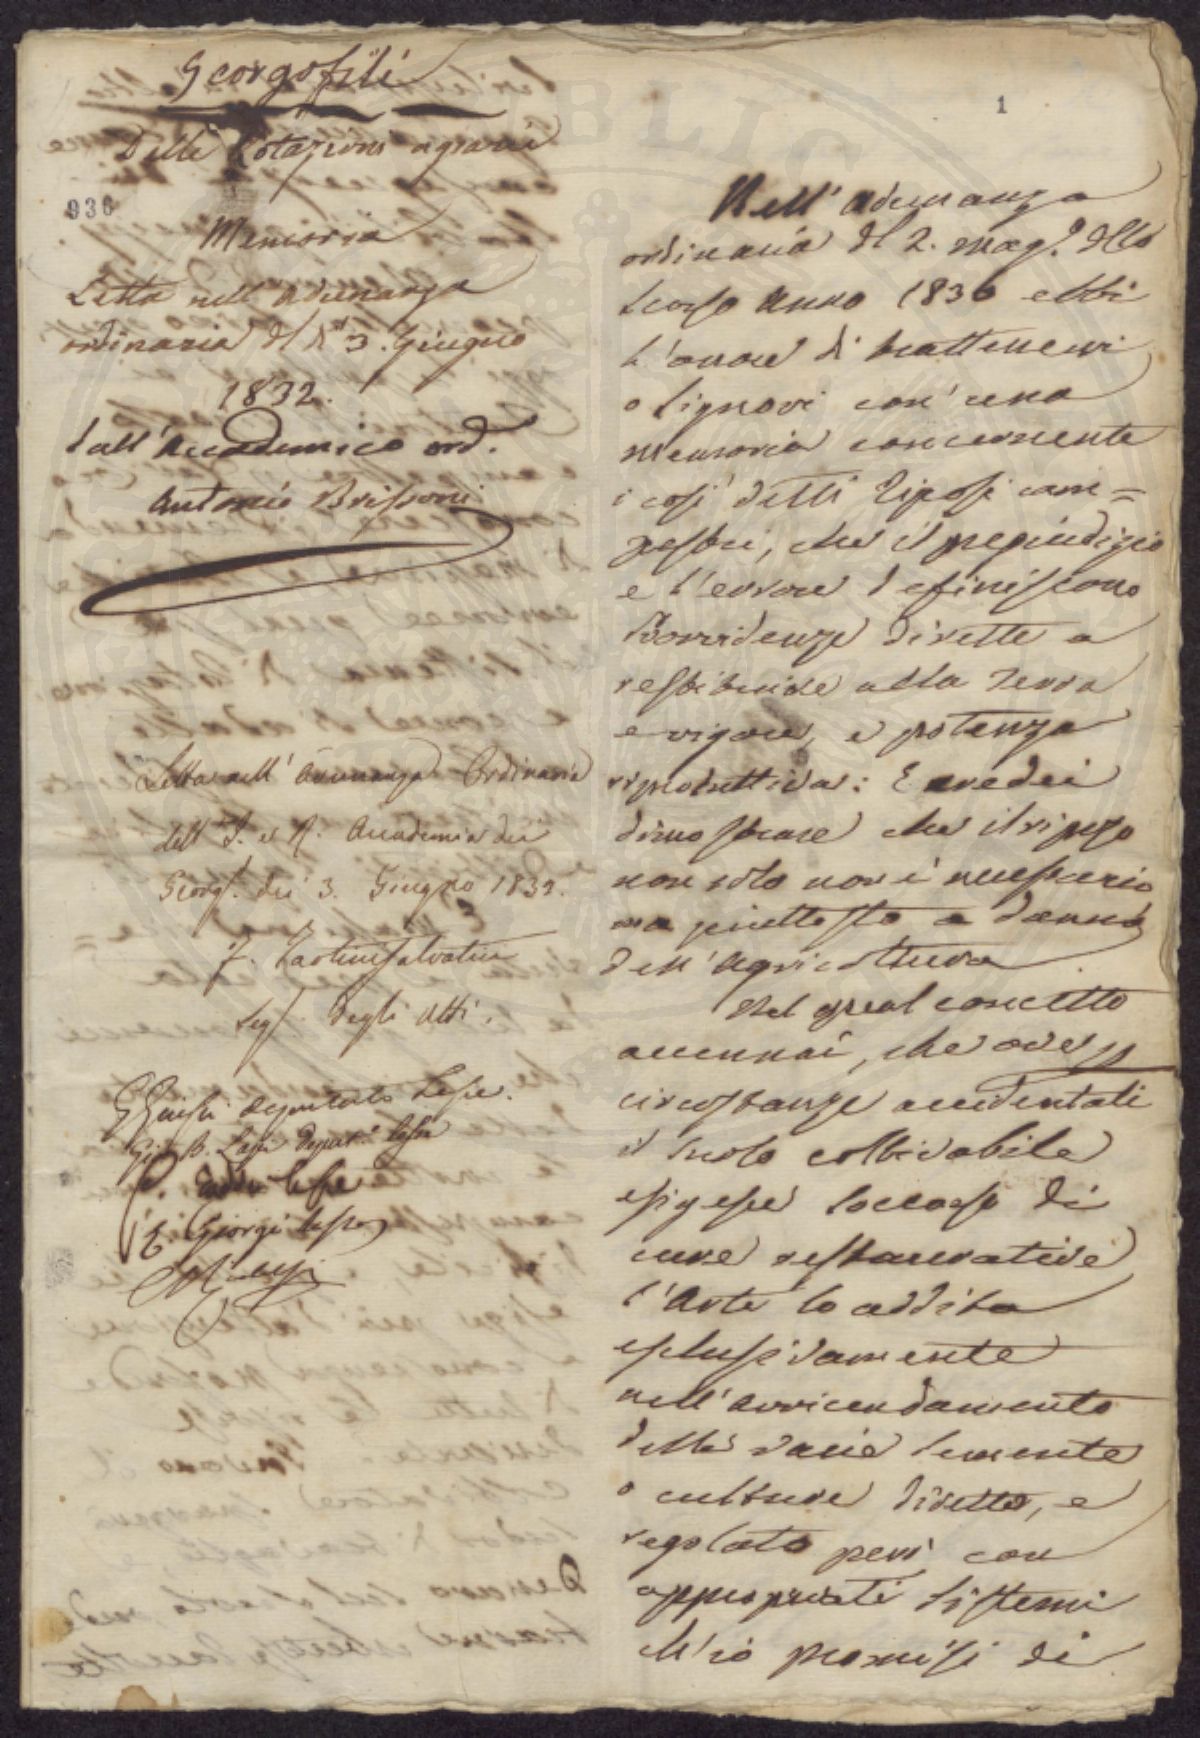 Georgofili
Delle Rotazioni agrarie
936
Memoria
Letta nell'Adunanza
ordinaria del dì 3. Giugno
1832.
dall'Accademico ord.
Antonio Brissoni
Letta nell'Adunanza Ordinaria
dell'I. e R. Accademia dei
Georgf. dei 3. Giugno 1832.
F. Tartini Salvatici
Seg. degli Atti.
deputato lesse.
Gio. B. Lapi Deput. lesse
lesse
E. Giorgi lesse
1
Nell'Adunanza
ordinaria del 2. Mag. dello
scorso anno 1830 ebbi
l'onore di trattenervi
o Signori con una
memoria concernente
i così detti riposi cam=
pestri, che il pregiudizio
e l'errore definiscono
Provvidenze dirette a
restituire alla Terra
e vigore, e potenza
riproduttiva: E credei
dimostrare che il riposo
non solo non è necessario
ma piuttosto a danno
dell'Agricoltura
Nel qual concetto
accennai, che ove
circostanze accidentali
il suolo coltivabile
esigesse soccorso di
cure restaurative
l'Arte lo addita
esclusivamente
nell'avvicendamento
delle varie semente
o culture diretto, e
regolato però con
appropriati sistemi
ch'io promisi di